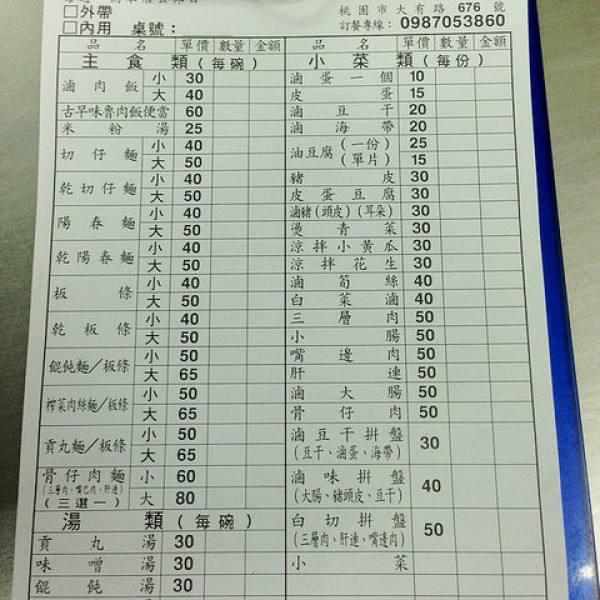 □外帶
□內用 桌號：
桃園市大有路 676 號
訂餐專線：0987053860
品名 單價 數量 金額
主食類（每碗）
滷肉飯 小 30
大 40
古早味魯肉飯便當 60
米粉湯 25
切仔麵 小 40
大 50
乾切仔麵 小 40
大 50
陽春麵 小 40
大 50
乾陽春麵 小 40
大 50
板條 小 40
大 50
乾板條 小 40
大 50
餛飩麵／板條 小 50
大 65
榨菜肉絲麵／板條 小 50
大 65
貢丸麵／板條 小 50
大 65
骨仔肉麵 小 60
(三層肉、嘴巴肉、肝連)
（三選一） 大 80
湯類（每碗）
貢丸湯 30
味噌湯 30
餛飩湯 30
品名 單價 數量 金額
小菜類（每份）
滷蛋一個 10
皮蛋 15
滷豆干 20
滷海帶 20
油豆腐（一份） 25
（單片） 15
豬皮 30
皮蛋豆腐 30
滷豬（頭皮）（耳朵） 30
燙青菜 30
涼拌小黃瓜 30
涼拌花生 30
滷筍絲 40
白菜滷 40
三層肉 50
小腸 50
嘴邊肉 50
肝連 50
滷大腸 50
骨仔肉 50
滷豆干拼盤 30
（豆干、滷蛋、海帶）
滷味拼盤 40
（大腸、豬頭皮、豆干）
白切拼盤 50
（三層肉、肝連、嘴邊肉）
小菜